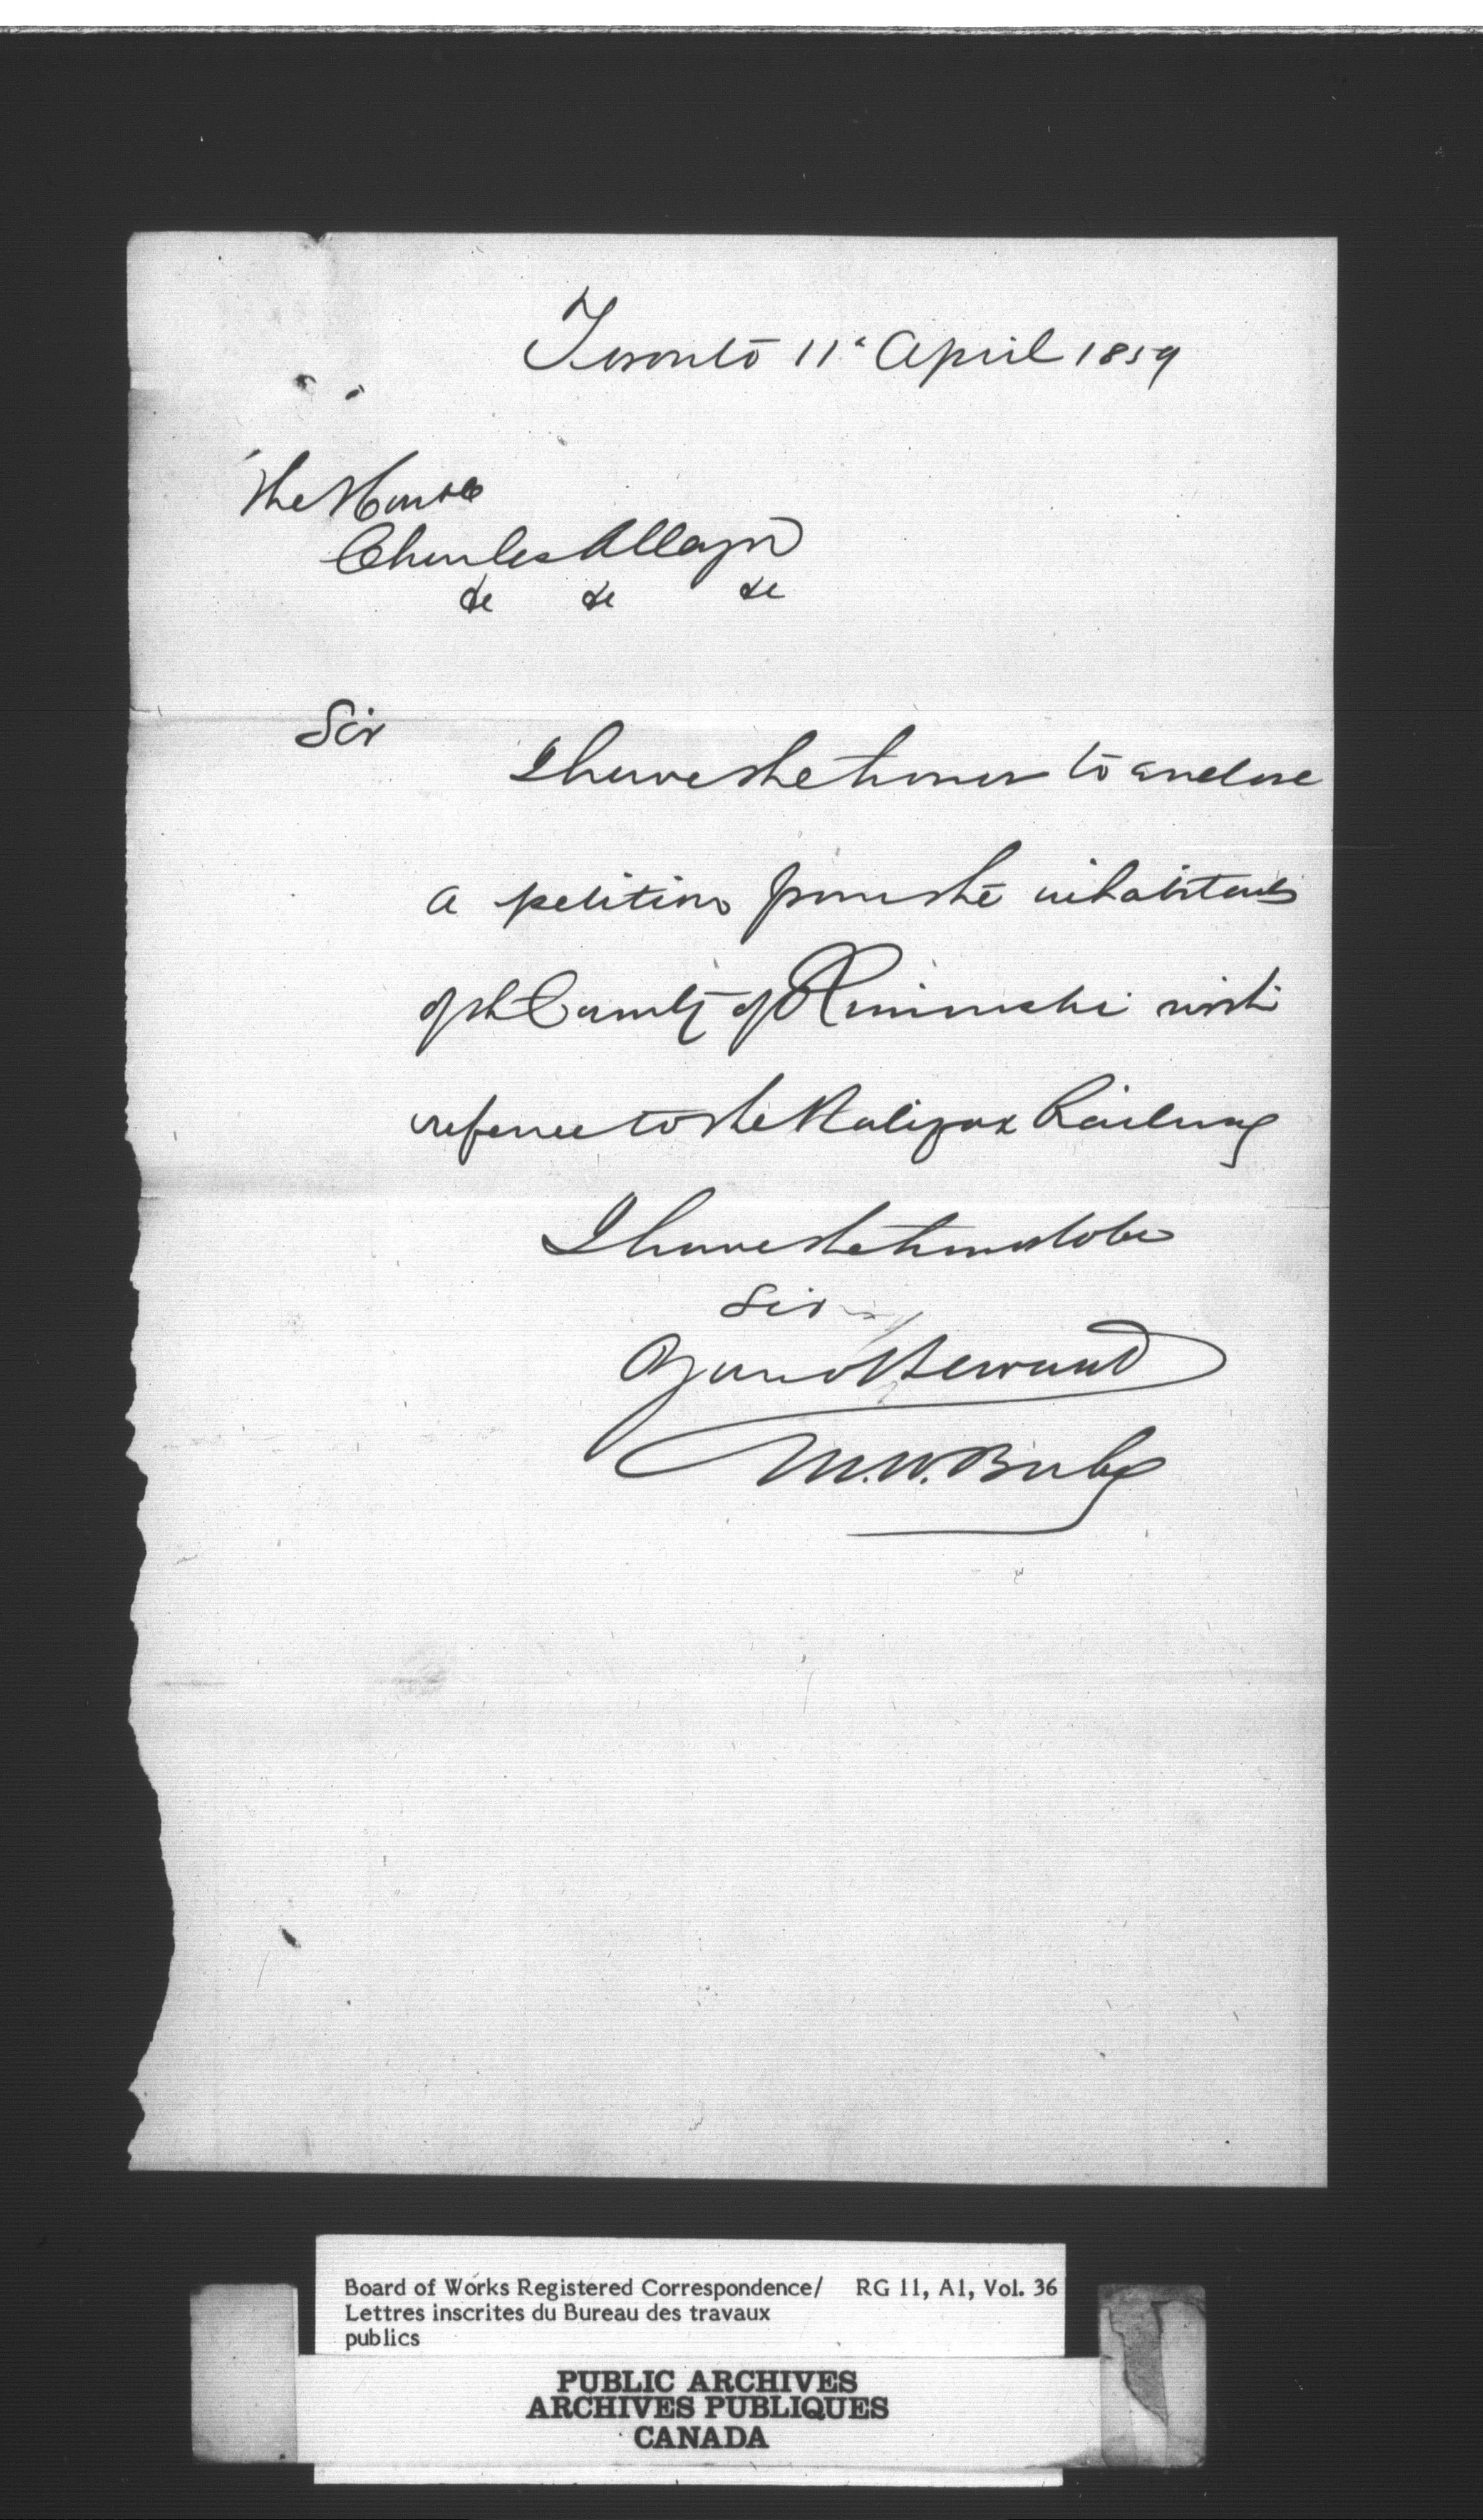 Toronto 11th April 1859
The Honble
Charles Alleyn
&c &c &c
Sir
I have the honor to enclose
a petition from the inhabitants
of the County of Rimouski with
reference to the Halifax Railway
I have the honor to be
Sir
Your obt Servant
M.W. Baby
Board of Works Registered Correspondence/ RG 11, A1, Vol. 36
Lettres inscrites du Bureau des travaux
publics
PUBLIC ARCHIVES
ARCHIVES PUBLIQUES
CANADA